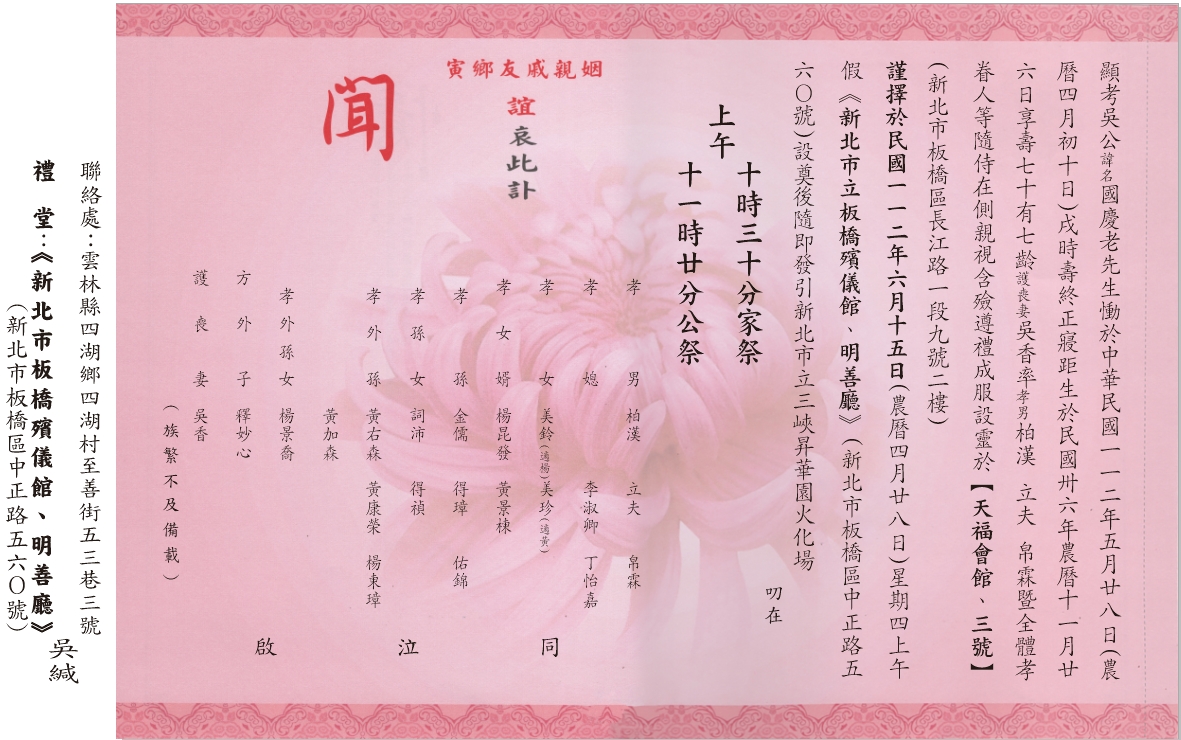 顯考吳公諱名國慶老先生慟於中華民國一一二年五月廿八日(農
曆四月初十日)戌時壽終正寢距生於民國卅六年農曆十一月廿
六日享壽七十有七齡護喪妻吳香率孝男柏漢 立夫 帛霖暨全體孝
眷人等隨侍在側親視含殮遵禮成服設靈於【天福會館、三號】
(新北市板橋區長江路一段九號二樓)
謹擇於民國一一二年六月十五日(農曆四月廿八日)星期四上午
假《新北市立板橋殯儀館、明善廳》(新北市板橋區中正路五
六〇號)設奠後隨即發引新北市立三峽昇華園火化場
叨在
上午
十時三十分家祭
十一時廿分公祭
姻親戚友鄉寅
誼哀此訃
聞
孝男 柏漢 立夫 帛霖
孝媳 李淑卿 丁怡嘉
孝女 美鈴(適楊) 美珍(適黃)
孝女婿 楊昆發 黃景棟
孝孫 金儒 得璋 佑錦
孝孫女 詞沛 得禎
孝外孫 黃右森 黃康榮 楊東璋
黃加森
孝外孫女 楊景喬
方外子 釋妙心
護喪妻 吳香
(族繁不及備載)
同泣啟
聯絡處：雲林縣四湖鄉四湖村至善街五三巷三號
吳緘
禮 堂：《新北市板橋殯儀館、明善廳》
(新北市板橋區中正路五六〇號)